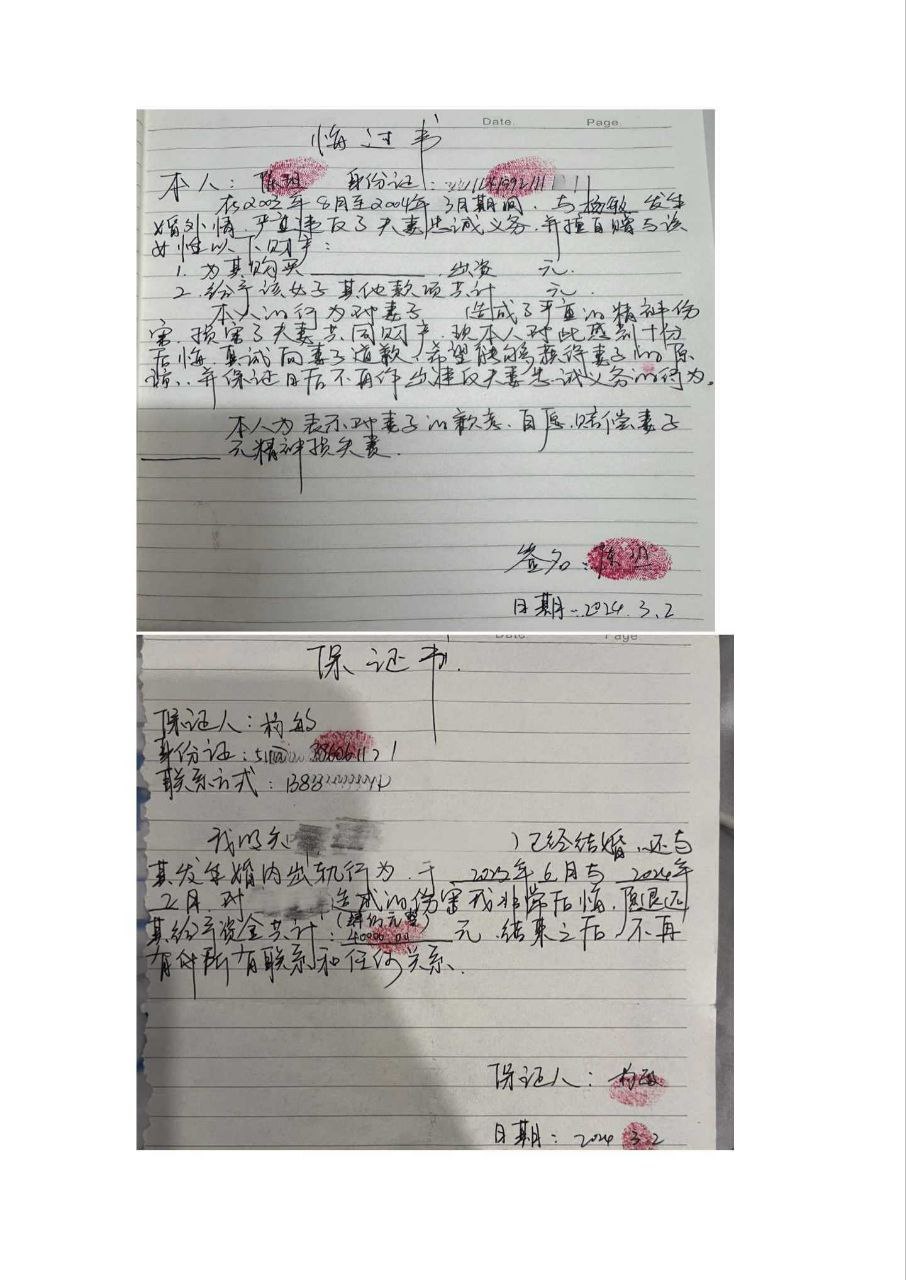 Date. Page.
悔过书
本人: 陈 身份证:
在2003年8月至2004年3月期间,与杨敏发生
婚外情,严重违反了夫妻忠诚义务,并擅自赠与该
女性以下财产:
1. 为其购买________,出资 元.
2. 给予该女子其他款项共计 元.
本人的行为对妻子 造成了严重的精神伤
害,损害了夫妻共同财产,现本人对此感到十分
后悔,真诚向妻子道歉,希望能够获得妻子的原
谅,并保证日后不再作出违反夫妻忠诚义务的行为.
本人为表示对妻子的歉意,自愿赔偿妻子
______元精神损失费.
签名: 陈
日期: 2024.3.2
Date Page
保证书.
保证人:杨敏
身份证:
联系方式:
我明知 )已经结婚,还与
其发生婚内出轨行为,于 年6月与2024年
2月,对 造成的伤害我非常后悔,愿退还
其给予资金共计: (肆万元整)
40000.00 元,结束之后,不再
有任何所有联系和任何关系.
保证人:杨敏
日期: 2024 3.2